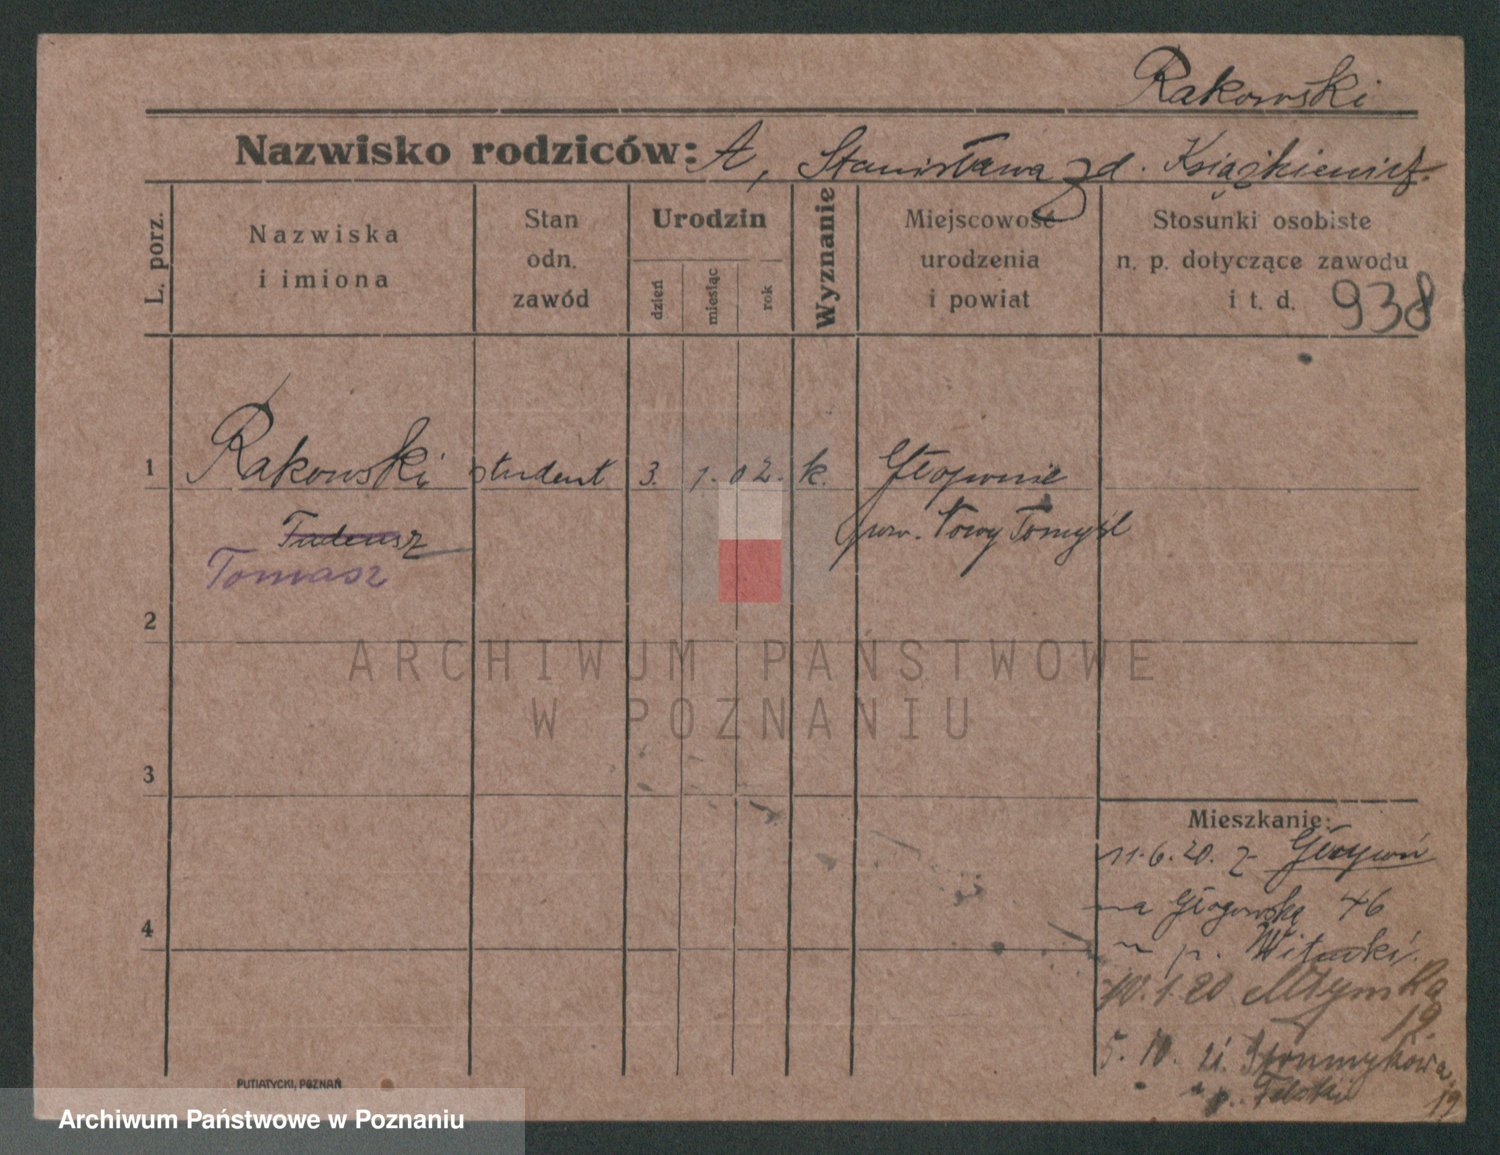 Rakowski
Nazwisko rodziców: A, Stanisława z d. Książkiewicz.
L. porz.
Nazwiska
i imiona
Stan
odn.
zawód
Urodzin
dzień
miesiąc
rok
Wyznanie
Miejscowość
urodzenia
i powiat
Stosunki osobiste
n. p. dotyczące zawodu
i t. d. 938
1 Rakowski student 3. 1. 02. k. Głoponie
Tadeusz pow. Nowy Tomyśl
Tomasz
2
ARCHIWUM PAŃSTWOWE
W POZNANIU
3
Mieszkanie:
11.6.20. z
na Głogowską 46
4
p. Witucki.
10.1.20 Młyńska
19.
5. 10. 21.
p. 19
PUTIATYCKI, POZNAŃ
Archiwum Państwowe w Poznaniu